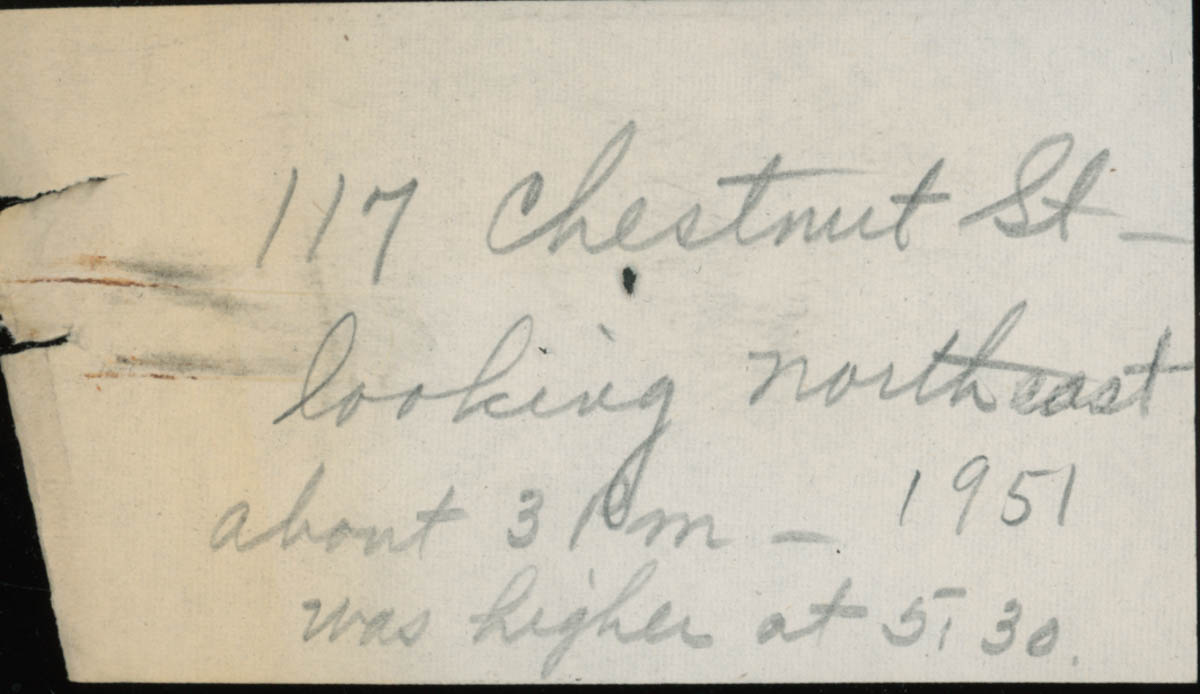 117 Chestnut St -
looking northeast
about 3 Pm - 1951
was higher at 5:30.